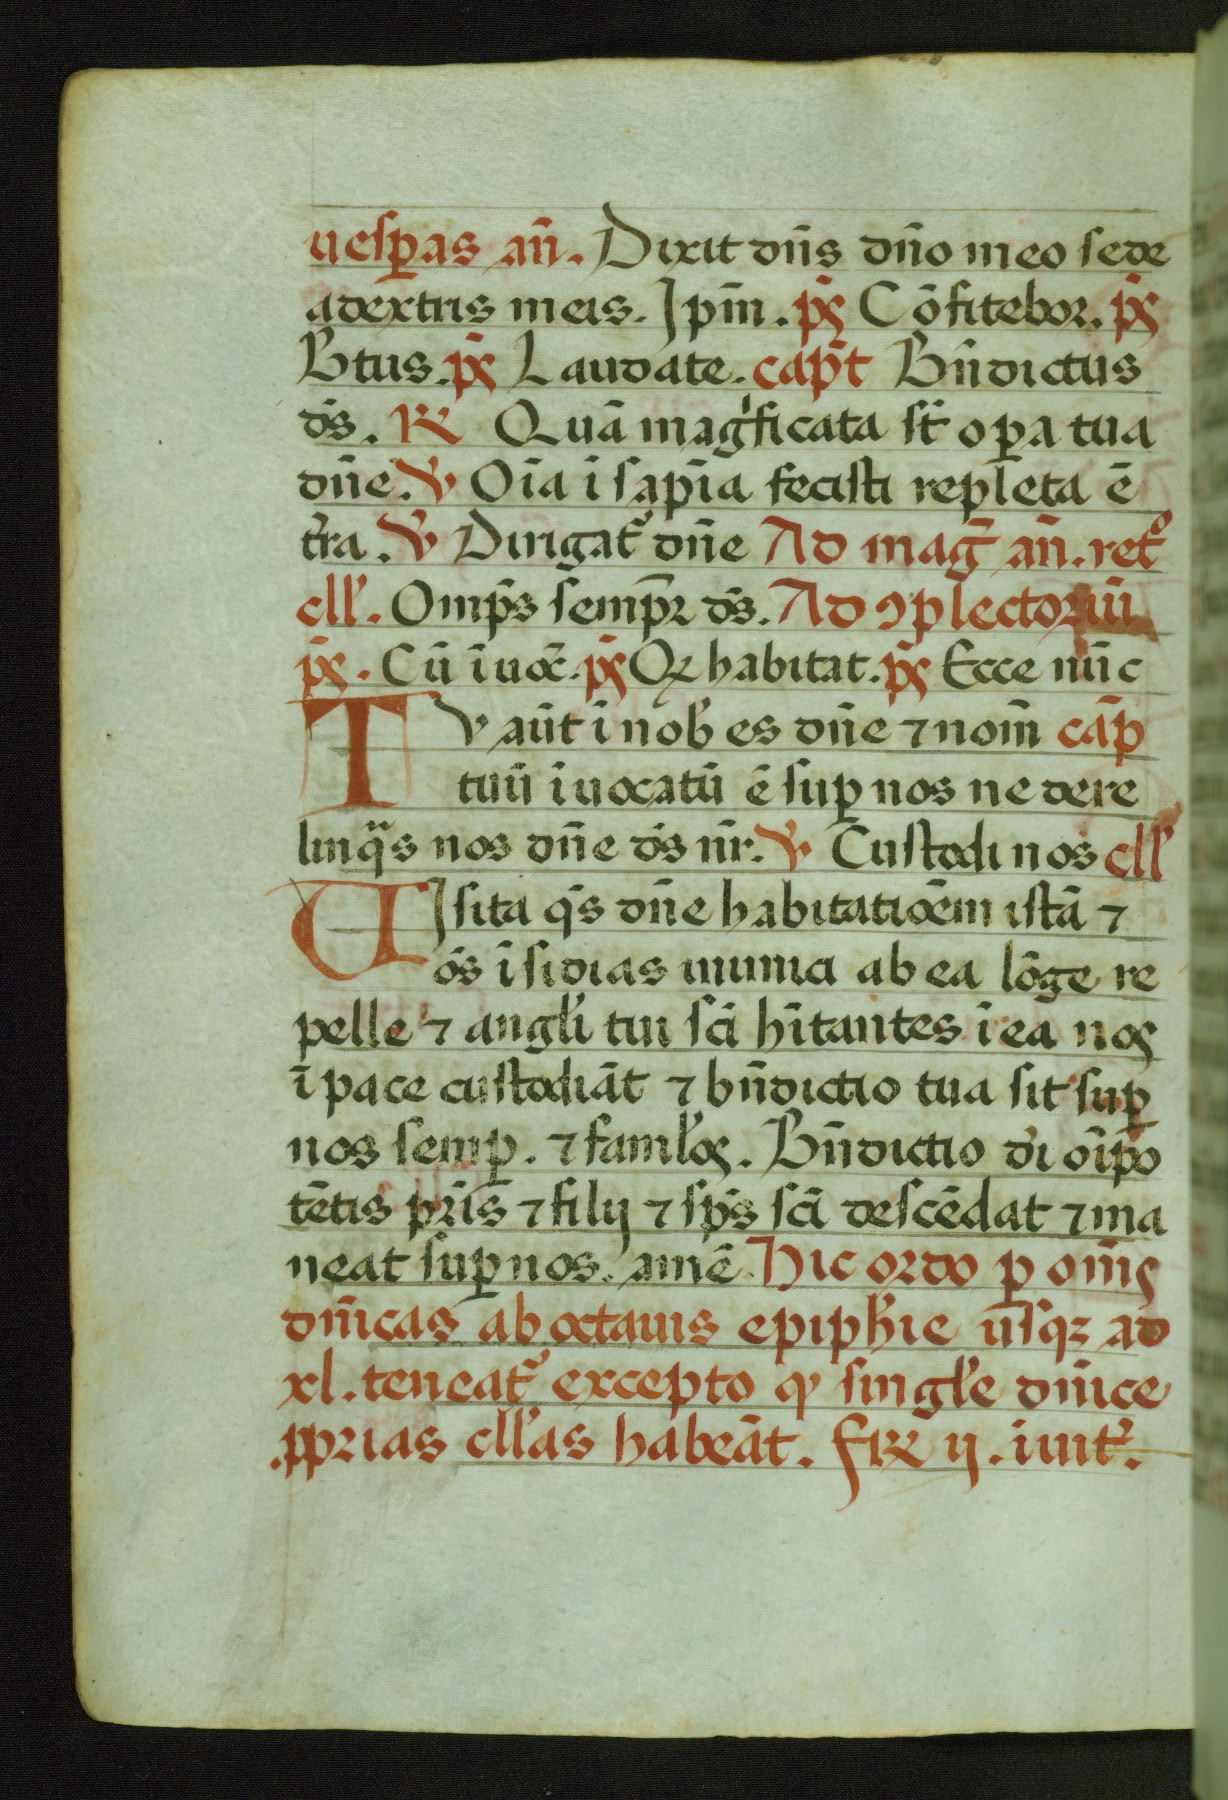 uesꝑas an̄. Dixit dn̄s dn̄o meo sede
adextris meis. Ipm̄. pꝰs Cōfitebor. pꝰs
Btus. pꝰs Laudate. cap̄t Bn̄dictus
ds̄. ℟ Quā mag̍ficata st̄ oꝑa tua
dn̄e. ℣ Oīa ī sapīa fecisti repleta ē
tr̄a. ℣ Dirigat᷑ dn̄e Ad maḡ an̄. ret͛o
cll'. Omp̄s semp̄r ds̄. Ad ꝯplectoriū
ps̄. Cū īuoc̄. ps̄ Qꝛ habitat. ps̄ Ecce nūc
TV aūt ī nob̄ es dn̄e ⁊ nom̄ cap̄
tuū īuocatū ē suꝑ nos ne dere
linqᷓs nos dn̄e ds̄ nr̄. ℣ Custodi nos cll'
UIsita qs̄ dn̄e habitatiōem istā ⁊
os̄ īsidias inimici ab ea lōge re
pelle ⁊ angl'i tui sc̄i hītantes ī ea nos
ī pace custodiāt ⁊ bn̄dictio tua sit suꝑ
nos semꝑ. ⁊ faml'os. Bn̄dictio dī oīpo
tētis pr̄is ⁊ filij ⁊ sps̄ sc̄i descēdat ⁊ ma
neat suꝑ nos. amē. Hic ordo ꝑ om̄s
dn̄icas ab octauis epiph̄ie usqꝫ ad
xl. teneat᷑ excepto ꝙ singl'e dn̄ice
ꝓprias cll'as habeāt. fr̄ ij. īuit᷑.